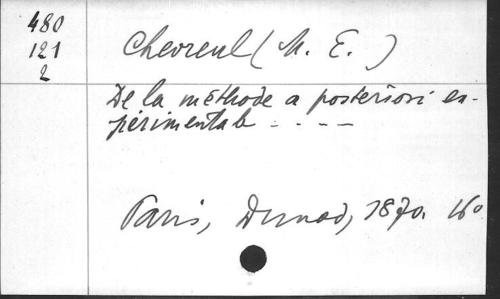 480
121
2
Chevreul (M. E.)
De la méthode a posteriori ex-
périmentale - - - -
Paris, Dunod, 1870. 16°